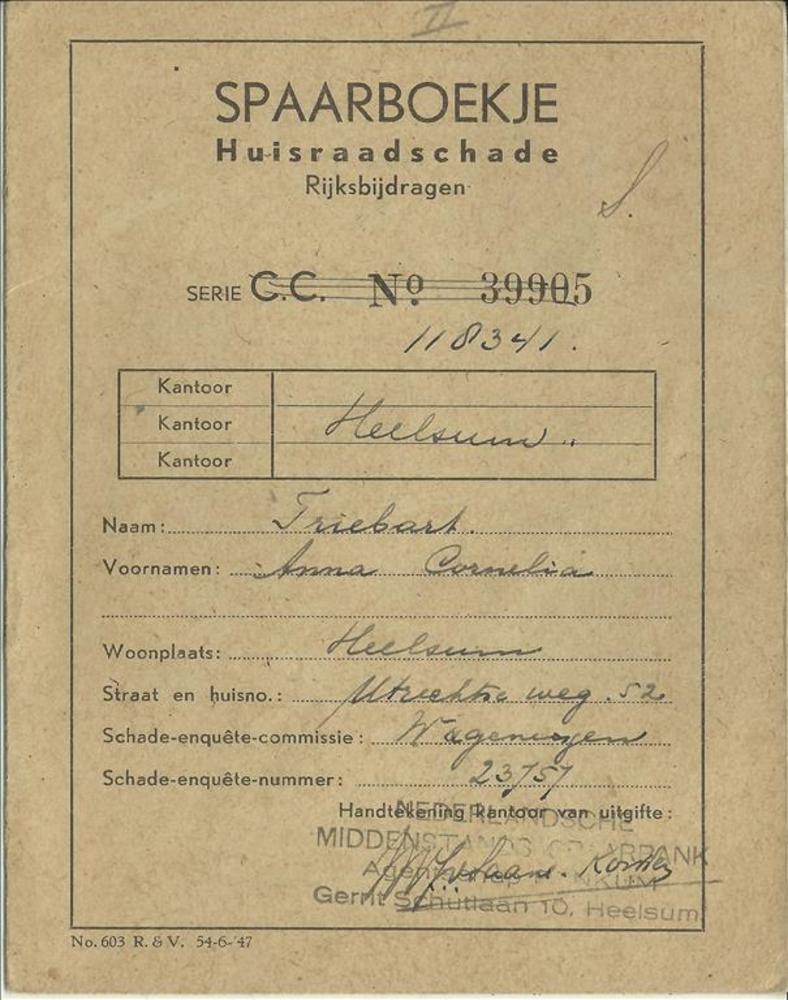 II
SPAARBOEKJE
Huisraadschade
Rijksbijdragen
S.
SERIE C.C. Nº 39905
118341.
Kantoor
Kantoor Heelsum
Kantoor
Naam: Triebart.
Voornamen: Anna Cornelia
Woonplaats: Heelsum
Straat en huisno.: Utrechtse weg. 52
Schade-enquête-commissie: Wageningen
Schade-enquête-nummer: 23757
Handtekening kantoor van uitgifte:
NEDERLANDSCHE
MIDDENSTANDS SPAARBANK
Gerrit Schutlaan 10, Heelsum
No. 603 R. & V. 54-6-'47